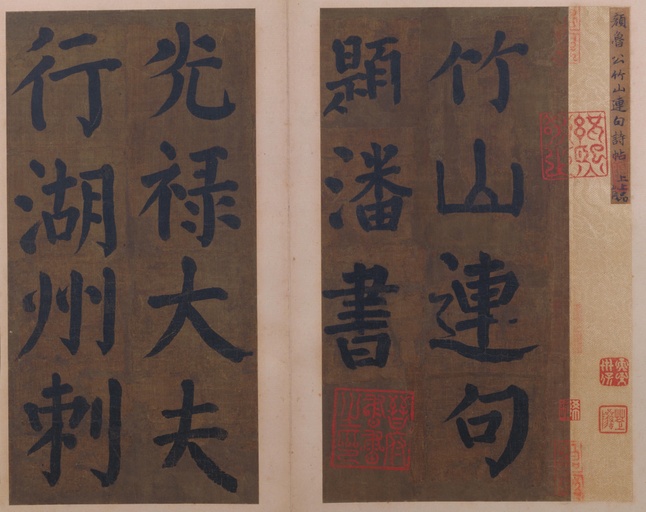 顏魯公竹山連句詩帖 上上
竹山連句
題潘書
光禄大夫
行湖州刺